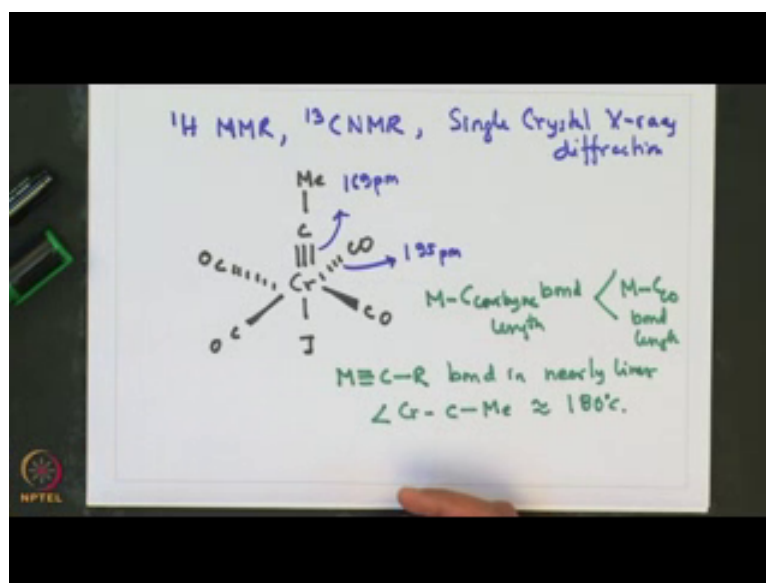 ¹H MMR, ¹³CNMR, Single Crystal X-ray
diffraction
Me 169pm
C
OC CO
195pm
Cr
OC CO
I
M-Ccarbyne bond < M-CCO
length bond
length
M≡C-R bond in nearly liner
∠Cr-C-Me ≈ 180°c.
NPTEL